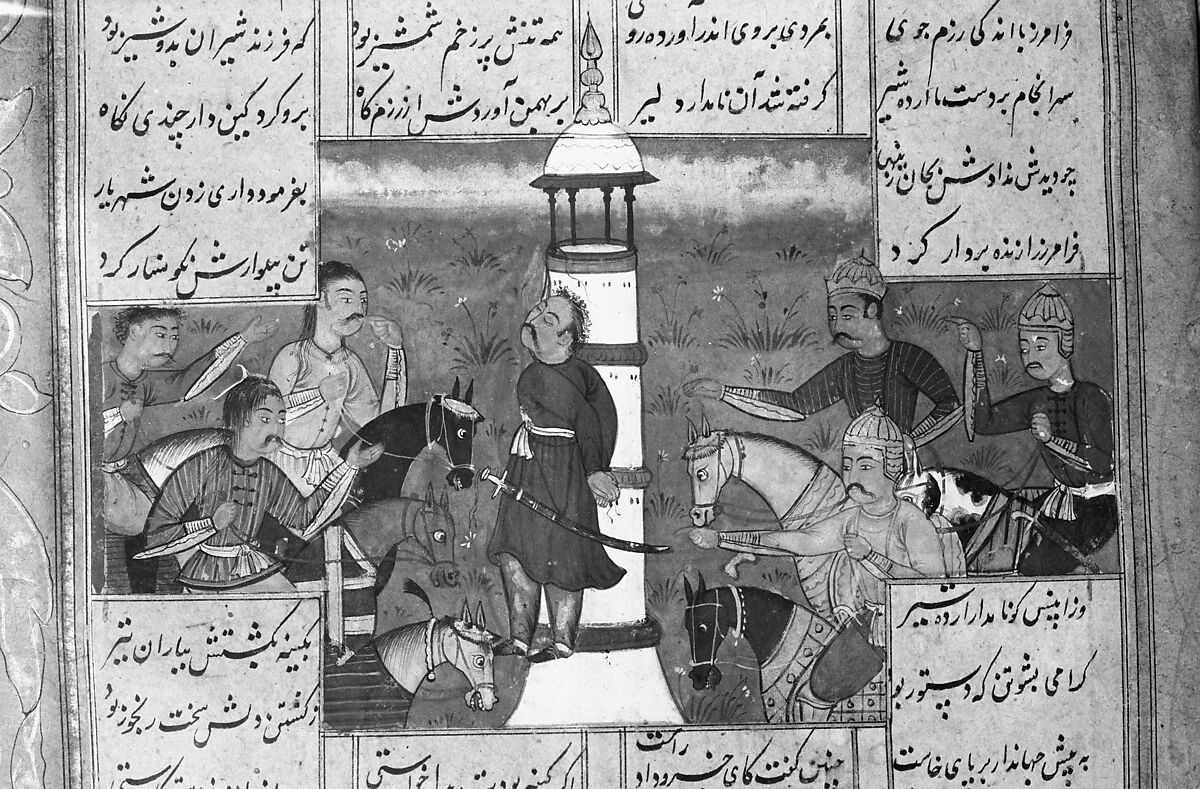 فرامرز با اندکی رزم جوی بمردی بروی اندر آورده روی همه تنش پر زخم شمشیر بود که فرزند شیران بد و شیر بود
سرانجام بر دست یا ارده شیر گرفته شد آن نامدار دلیر بر بهمن آوردش از رزم کاه برو کرد کین دار چندی نکاه
چو دیدش ندادش بجان زینهار بفرمود داری زدن شهریار
فرامرز را زنده بر دار کرد تن پیلوارش نکوسار کرد
وزان پس کو نامدار ارده شیر بکینه بکشتش بباران تیر
کرامی بشوتن که دستور بود ز کشتن دلش سخت رنجور بود
به پیش جهاندار بر پای خاست چنین کفت کای خسرو داد راست اکر کینه بودت خواستی